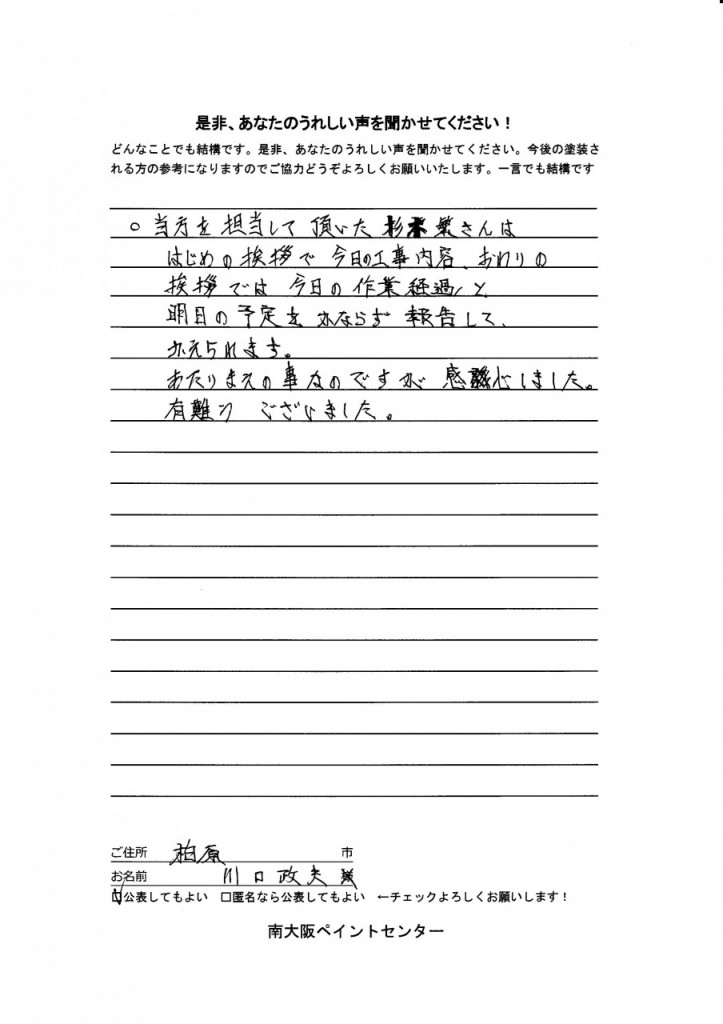 是非、あなたのうれしい声を聞かせてください！
どんなことでも結構です。是非、あなたのうれしい声を聞かせてください。今後の塗装さ
れる方の参考になりますのでご協力どうぞよろしくお願いいたします。一言でも結構です
○当方を担当して頂いた杉本繁さんは
はじめの挨拶で今日の工事内容、おわりの
挨拶では今日の作業経過と
明日の予定をかならず報告して、
かえられます。
あたりまえの事なのですが感心しました。
有難うございました。
ご住所 柏原 市
お名前 川口政夫
☑公表してもよい □匿名なら公表してもよい ←チェックよろしくお願いします！
南大阪ペイントセンター